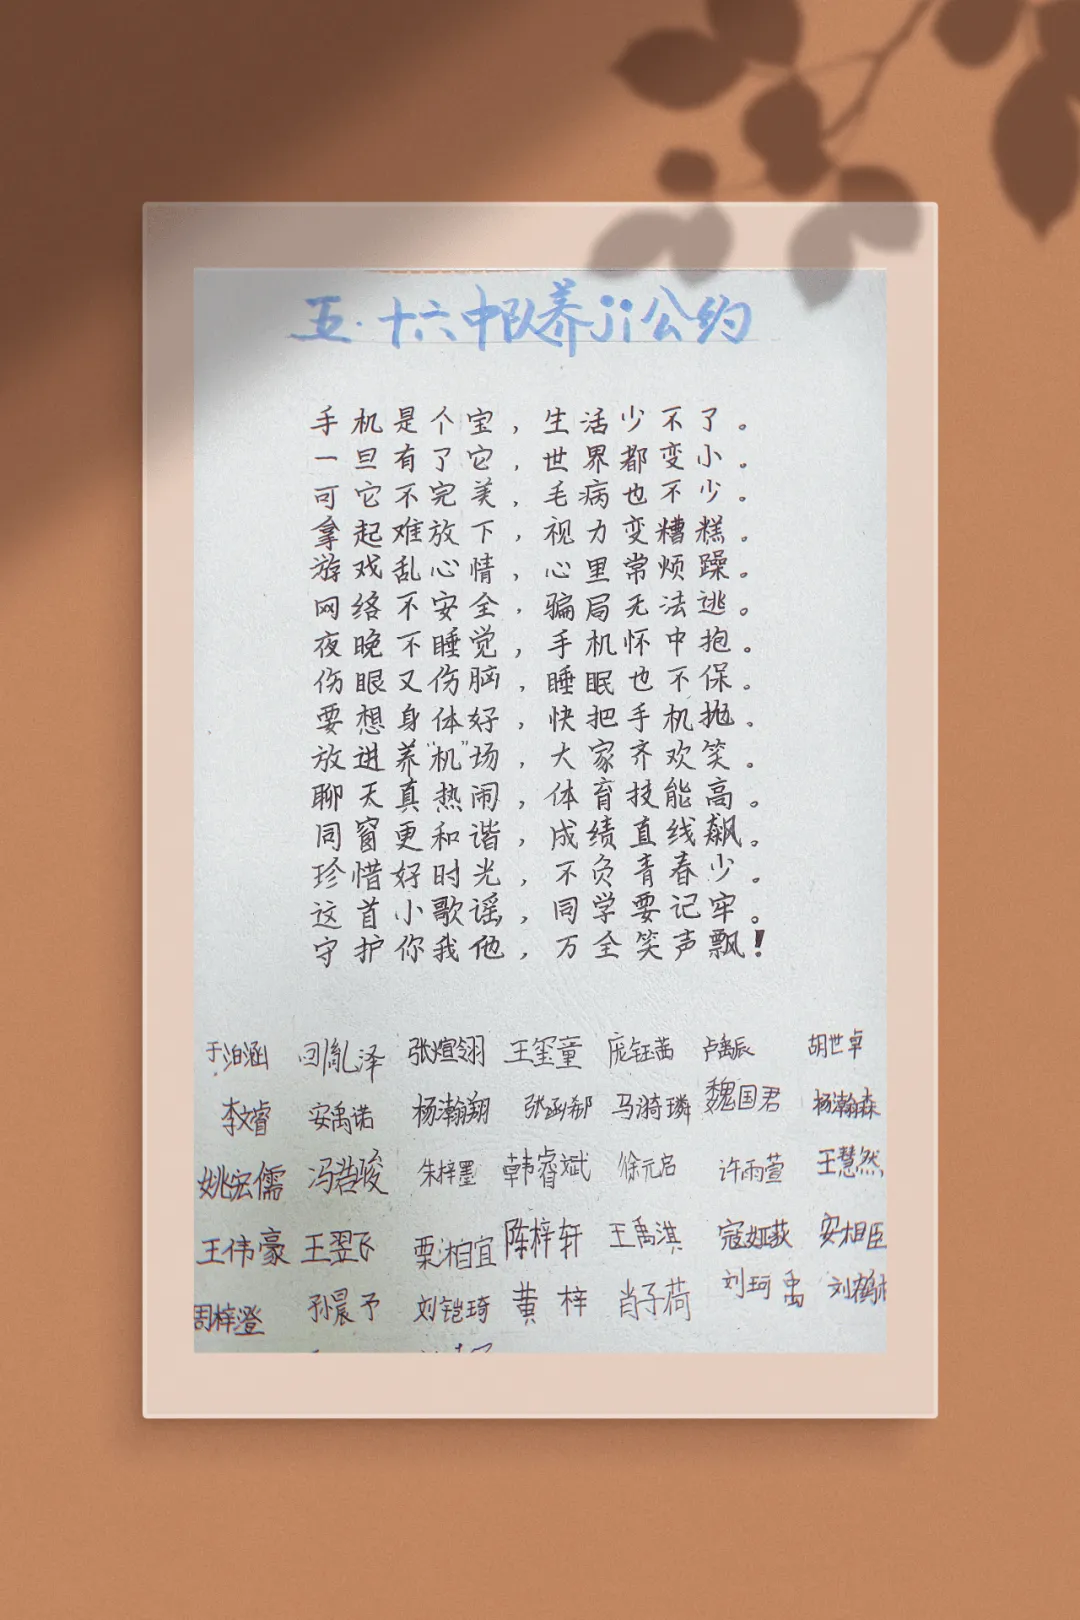 五·十六中队养ji公约
手机是个宝，生活少不了。
一旦有了它，世界都变小。
可它不完美，毛病也不少。
拿起难放下，视力变糟糕。
游戏乱心情，心里常烦躁。
网络不安全，骗局无法逃。
夜晚不睡觉，手机怀中抱。
伤眼又伤脑，睡眠也不保。
要想身体好，快把手机抛。
放进养“机”场，大家齐欢笑。
聊天真热闹，体育技能高。
同窗更和谐，成绩直线飙。
珍惜好时光，不负青春少。
这首小歌谣，同学要记牢。
守护你我他，万全笑声飘！
于泊涵 回胤泽 张煊翎 王玺童 庞钰茜 卢禹辰 胡世卓
李文睿 安禹诺 杨瀚翔 张函郗 马漪璘 魏国君 杨瀚森
姚宏儒 冯浩骏 朱梓墨 韩睿斌 徐元启 许雨萱 王慧然
王伟豪 王翌飞 栗湘宜 陈梓轩 王禹淇 寇娅荻 安相臣
周梓澄 孙晨予 刘铠琦 黄梓 肖子荷 刘珂禹 刘鹤